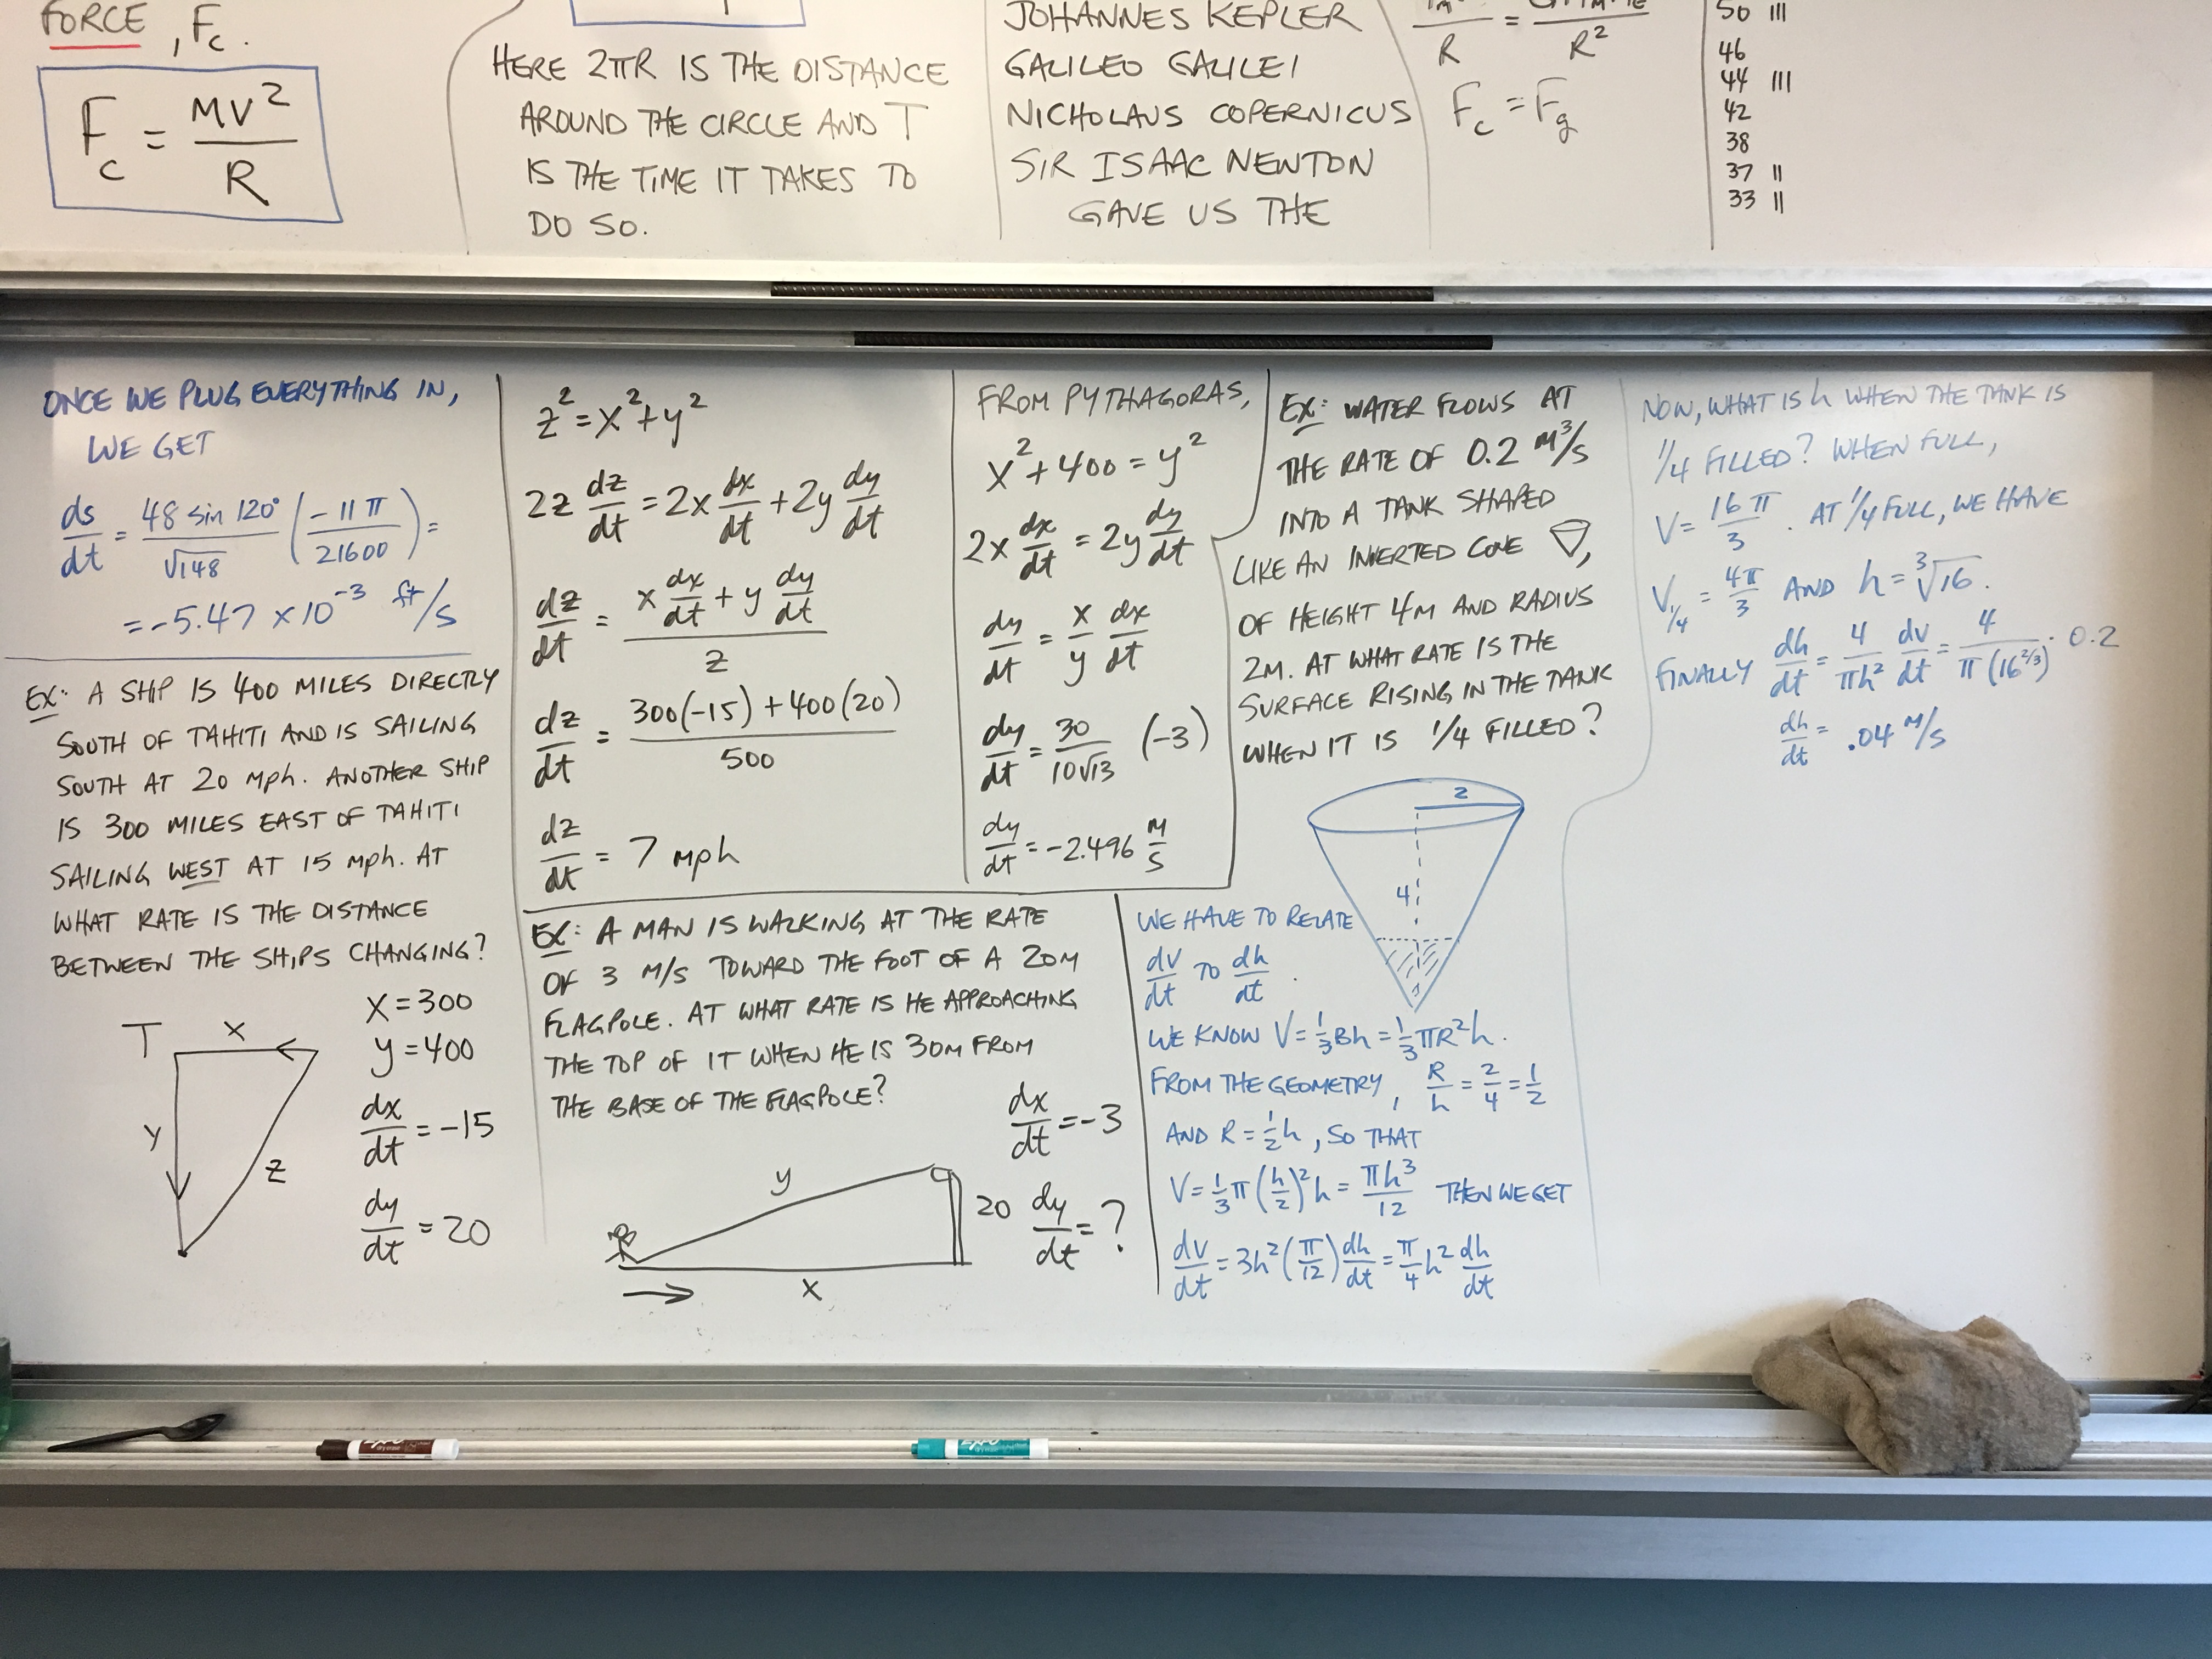 FORCE, Fc.
Fc = MV²/R
HERE 2πR IS THE DISTANCE
AROUND THE CIRCLE AND T
IS THE TIME IT TAKES TO
DO SO.
JOHANNES KEPLER
GALILEO GALILEI
NICHOLAUS COPERNICUS
SIR ISAAC NEWTON
GAVE US THE
R = R²
Fc = Fg
50 |||
46
44 |||
42
38
37 ||
33 ||
ONCE WE PLUG EVERYTHING IN,
WE GET
ds/dt = 48 sin 120°/√148 (-11π/21600) =
= -5.47 × 10⁻³ ft/s
EX: A SHIP IS 400 MILES DIRECTLY
SOUTH OF TAHITI AND IS SAILING
SOUTH AT 20 mph. ANOTHER SHIP
IS 300 MILES EAST OF TAHITI
SAILING WEST AT 15 mph. AT
WHAT RATE IS THE DISTANCE
BETWEEN THE SHIPS CHANGING?
T x
y
z
x = 300
y = 400
dx/dt = -15
dy/dt = 20
z² = x² + y²
2z dz/dt = 2x dx/dt + 2y dy/dt
dz/dt = (x dx/dt + y dy/dt)/z
dz/dt = (300(-15) + 400(20))/500
dz/dt = 7 mph
EX: A MAN IS WALKING AT THE RATE
OF 3 M/S TOWARD THE FOOT OF A 20M
FLAGPOLE. AT WHAT RATE IS HE APPROACHING
THE TOP OF IT WHEN HE IS 30M FROM
THE BASE OF THE FLAGPOLE?
dx/dt = -3
y
20
dy/dt = ?
x
FROM PYTHAGORAS,
x² + 400 = y²
2x dx/dt = 2y dy/dt
dy/dt = x/y dx/dt
dy/dt = 30/10√13 (-3)
dy/dt = -2.496 M/S
EX: WATER FLOWS AT
THE RATE OF 0.2 M³/S
INTO A TANK SHAPED
LIKE AN INVERTED CONE ,
OF HEIGHT 4M AND RADIUS
2M. AT WHAT RATE IS THE
SURFACE RISING IN THE TANK
WHEN IT IS 1/4 FILLED?
2
4
WE HAVE TO RELATE
dV/dt TO dh/dt.
WE KNOW V = 1/3 Bh = 1/3 πR²h.
FROM THE GEOMETRY, R/h = 2/4 = 1/2
AND R = 1/2 h, SO THAT
V = 1/3 π (h/2)² h = πh³/12 THEN WE GET
dV/dt = 3h² (π/12) dh/dt = π/4 h² dh/dt
NOW, WHAT IS h WHEN THE TANK IS
1/4 FILLED? WHEN FULL,
V = 16π/3. AT 1/4 FULL, WE HAVE
V1/4 = 4π/3 AND h = ³√16.
FINALLY dh/dt = 4/πh² dV/dt = 4/π(16^2/3) · 0.2
dh/dt = .04 M/S
EXPO
dry erase
EXPO
dry erase